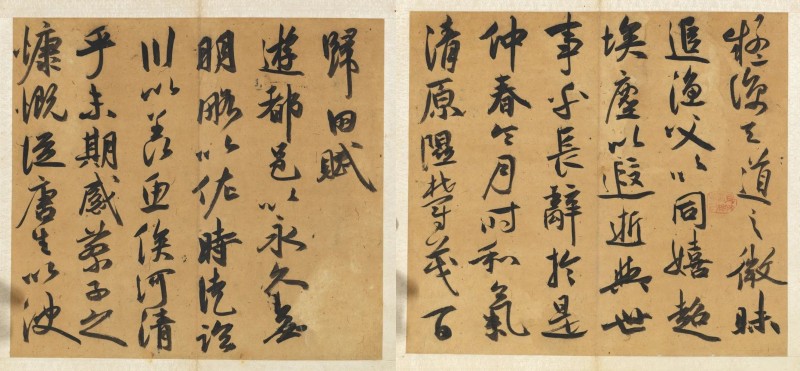 歸田賦
遊都邑以永久無
明略以佐時徒臨
川以羨魚俟河清
乎未期感蔡子之
慷慨從唐生以決
疑諒天道之微昧
追漁父以同嬉超
埃塵以遐逝與世
事乎長辭於是
仲春令月時和氣
清原隰鬱茂百